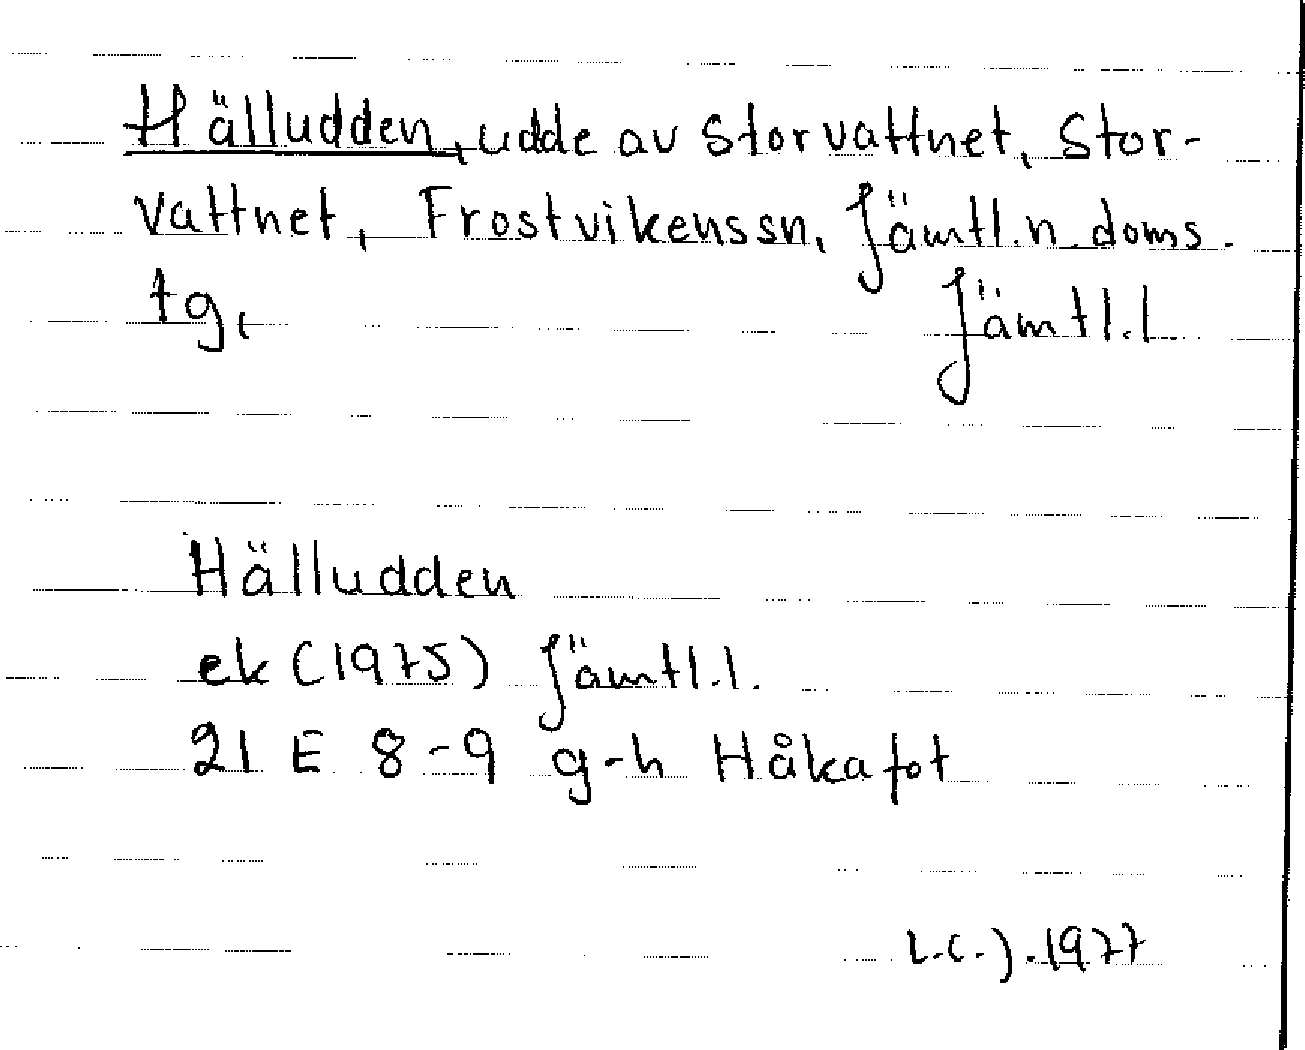 Hälludden, udde av Storvattnet, Stor-
vattnet, Frostvikens sn, Jämtl. n. doms.
tg, Jämtl. l
Hälludden
ek (1975) Jämtl. l.
21 E 8-9 g-h Håkafot
L.C.J. 1977